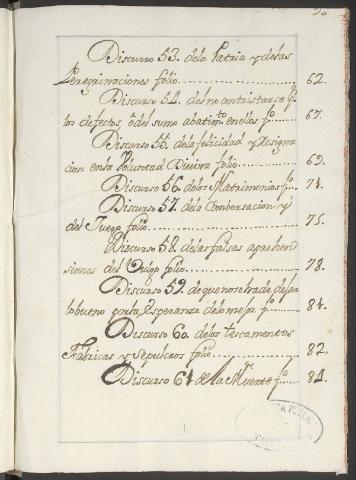 Discurso 53. dela Patria y delas
Peregrinaciones folio 62.
Discurso 54. del no contristarse
los defectos, del sumo abatim.to en ellos f.o 67.
Discurso 55. dela felicidad y Resigna
cion en la Voluntad Divina folio 69.
Discurso 56. de los Matrimonios f.o 71.
Discurso 57. de la Combersacion y
del Juego folio 75.
Discurso 58. de las falsas aprehen
siones del Vulgo folio 78.
Discurso 59. de que no se ha de dejar
lo bueno por la Esperanza de lo mejor f.o 81.
Discurso 60. de los testamentos
Fabricas y Sepulcros folio 82.
Discurso 61 de la Muerte f.o 84.